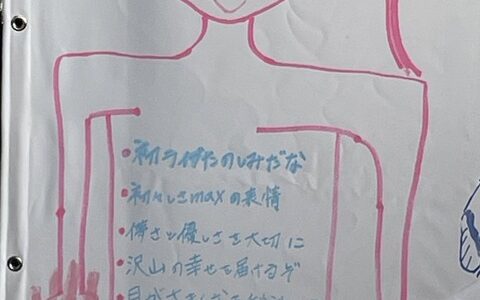 ・初ライブたのしみだな
・初々しさmaxの表情
・儚さと優しさを大切に
・沢山の幸せを届けるぞ